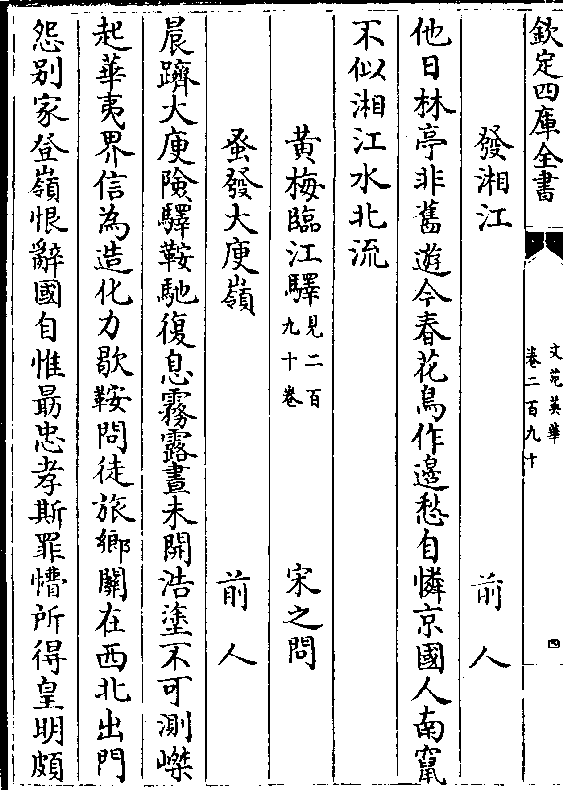 欽定四庫全書
文苑英華
卷二百九十
四
發湘江
前人
他日林亭非舊遊今春花鳥作邊愁自憐京國人南竄
不似湘江水北流
黄梅臨江驛
見二百
九十卷
宋之問
蚤發大庾嶺
前人
晨躋大庾險驛鞍馳復息霧露晝未開浩塗不可測嵥
起華夷界信為造化力歇鞍問徒旅鄉關在西北出門
怨别家登嶺恨辭國自惟朂忠孝斯罪懵所得皇明頗